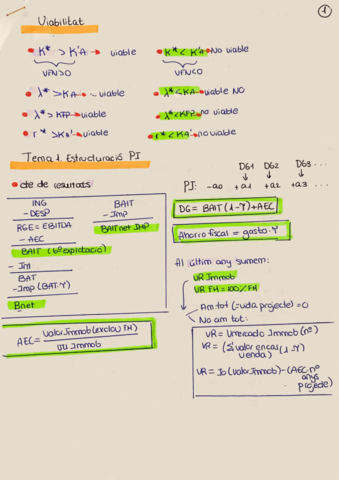 1
Viabilitat
K* > K'A → viable
K* < K'A No viable
VFN>0
VFN<0
λ* > KA → viable
λ* < KA → viable NO
λ* > KFP → viable
λ* < KFP no viable
r* > KA' → viable
r* < KA' no viable
Tema 1. Estructuració PI
cte de resultats:
ING
- DESP
RGE = EBITDA
- AEC
BAIT (bº explotació)
- Int
BAT
- Imp (BAT·Υ)
Bnet
BAIT
- Imp
BAIT net IMP
AEC = valor Immob (exclou FH) / VU Immob
DG1 DG2 DG3 ...
PI: -a0 +a1 +a2 +a3 ...
DG = BAIT (1-Υ) + AEC
Ahorro fiscal = gasto·Υ
Al últim any sumem:
VR Immob
VR FH = 100% FH
Am.tot (=vida projecte) = 0
No am tot:
VR = Umercado Immob (nº)
VR = (Si valor en cas venda) (1-Υ)
VR = I0 (Valor Immob) - (AEC · nº
anys
projecte)